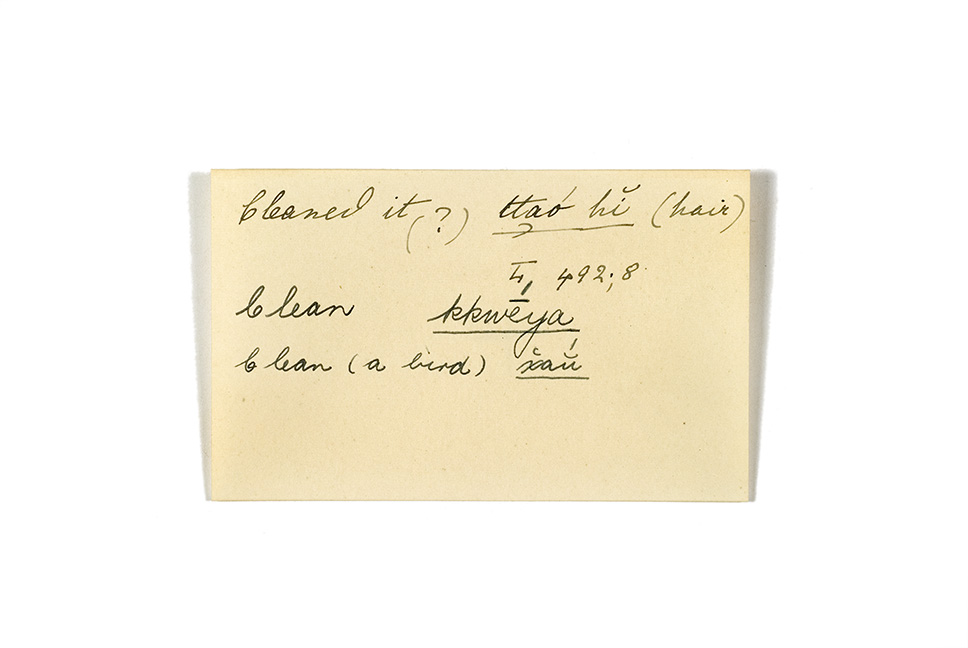 Cleaned it (?) ttaó hĭ (hair)
I, 492; 8
Clean kkwēya
Clean (a bird) x̌aŭ́